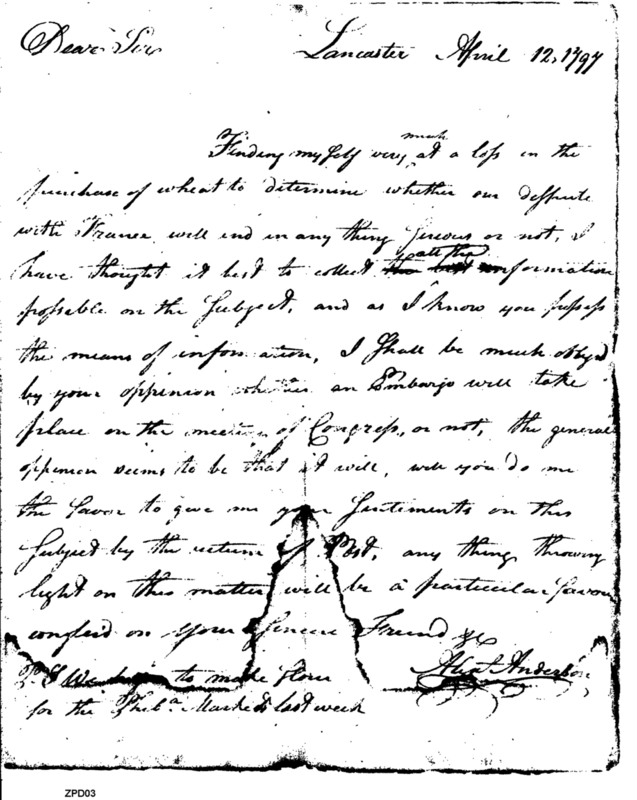 Dear Sir Lancaster April 12, 1797
much
Finding my self very at a loss in the
purchase of wheat to determine whether our desspute
with France will end in any thing serious or not, I
all the
have thought it best to collect the best information
possable on the Subject, and as I know you possess
the means of information, I Shall be much oblyd
by your oppinion whether an Embargo will take
place on the meeting of Congress, or not, the general
oppinion seems to be that it will, will you do me
the favor to give me your Sentiments on this
Subject by the return of Post, any thing throwing
light on this matter will be a particular favour
confer'd on your Sincere Friend &c
P. S We began to make flour Alexr Anderson
for the Phila Market last week
ZPD03